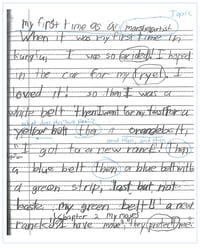 Topic
my first time as a marshalartist
When it was my first time in
kungfu, I was so exided! I hoped
in the car for my tryel, I
loved it! so then I was a
white belt then I went for my test for a
yellow belt then a orange belt,
I got to a new rank! then
a blue belt then a blue belt with
a green strip, last but not
least my green belt!! a new
chapter 2 my moves
rank have move they protect